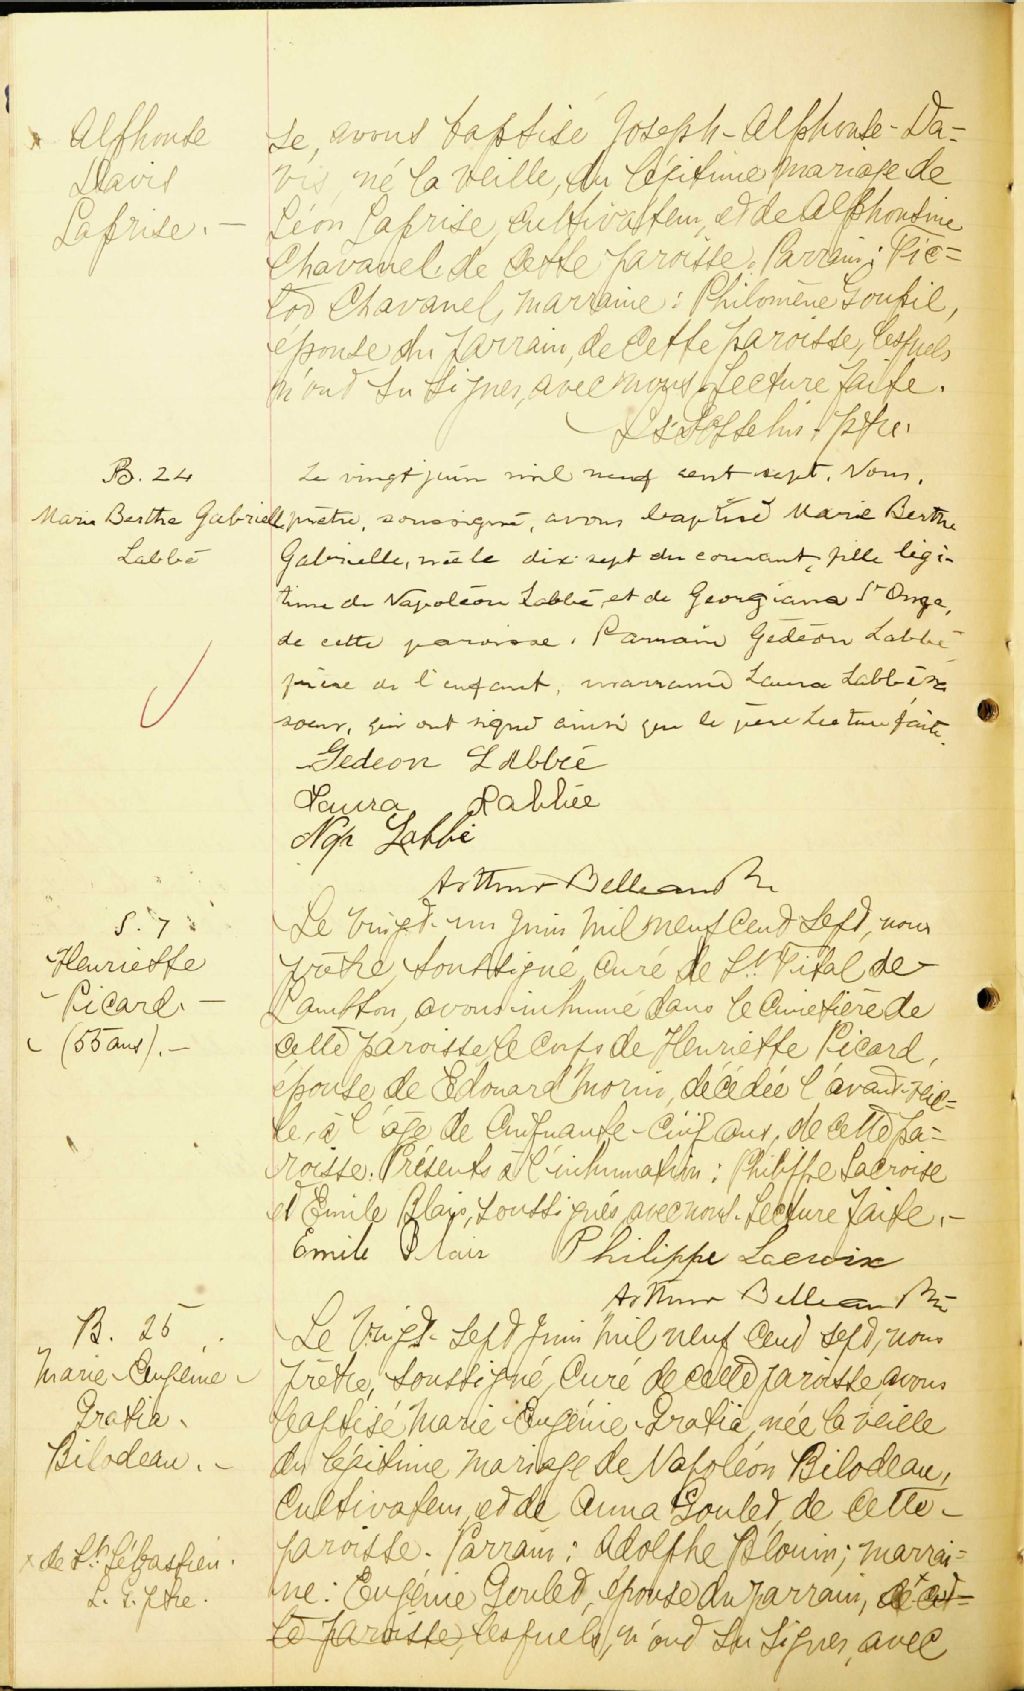 Alphonse
Davis
Laprise. -
se, avons baptisé Joseph-Alphonse-Da=
vis, né la veille, du légitime mariage de
Léon Laprise, cultivateur, et de Alphonsine
Chavanel de cette paroisse. Parrain: Vic=
tor Chavanel, marraine: Philomène Goupil,
épouse du parrain, de cette paroisse, lesquels
n'ont su signer, avec nous. Lecture faite.
Ls Gosselin. Ptre.
B. 24
Marie Berthe Gabrielle
Labbé
Le vingt juin mil neuf cent sept. Nous,
prêtre, soussigné, avons baptisé Marie Berthe
Gabrielle, née le dix sept du courant, fille légi-
time de Napoléon Labbé et de Georgiana St Onge,
de cette paroisse. Parrain Gédéon Labbé
frère de l'enfant, marraine Laura Labbé, sa
soeur, qui ont signé ainsi que le père Lecture faite.
Gedeon Labbée
Laura Labbée
Np Labbé
Arthur Belleau Ptr
S. 7
Henriette
Picard. -
(55 ans). -
Le vingt-un juin mil neuf cent sept, nous
prêtre, soussigné, curé de St Vital de
Lambton, avons inhumé dans le cimetière de
cette paroisse, le corps de Henriette Picard,
épouse de Edouard Morin, décédée l'avant-veil=
le, à l'âge de cinquante-cinq ans, de cette pa=
roisse. Présents à l'inhumation: Philippe Lacroise
et Emile Blais, soussignés, avec nous. Lecture faite. -
Emile Blais Philippe Lacroix
Arthur Belleau Ptr
B. 25
Marie-Eugénie-
Gratia.
Bilodeau. -
Le vingt-sept juin mil neuf cent sept, nous
prêtre, soussigné, curé de cette paroisse, avons
baptisé Marie-Eugénie-Gratia, née la veille
du légitime mariage de Napoléon Bilodeau,
cultivateur, et de Anna Goulet, de cette
paroisse. Parrain: Adolphe Blouin; marrai=
ne: Eugénie Goulet, épouse du parrain, de cet=
te paroisse, lesquels, n'ont su signer, avec
x de St Sébastien.
L. G. Ptre.